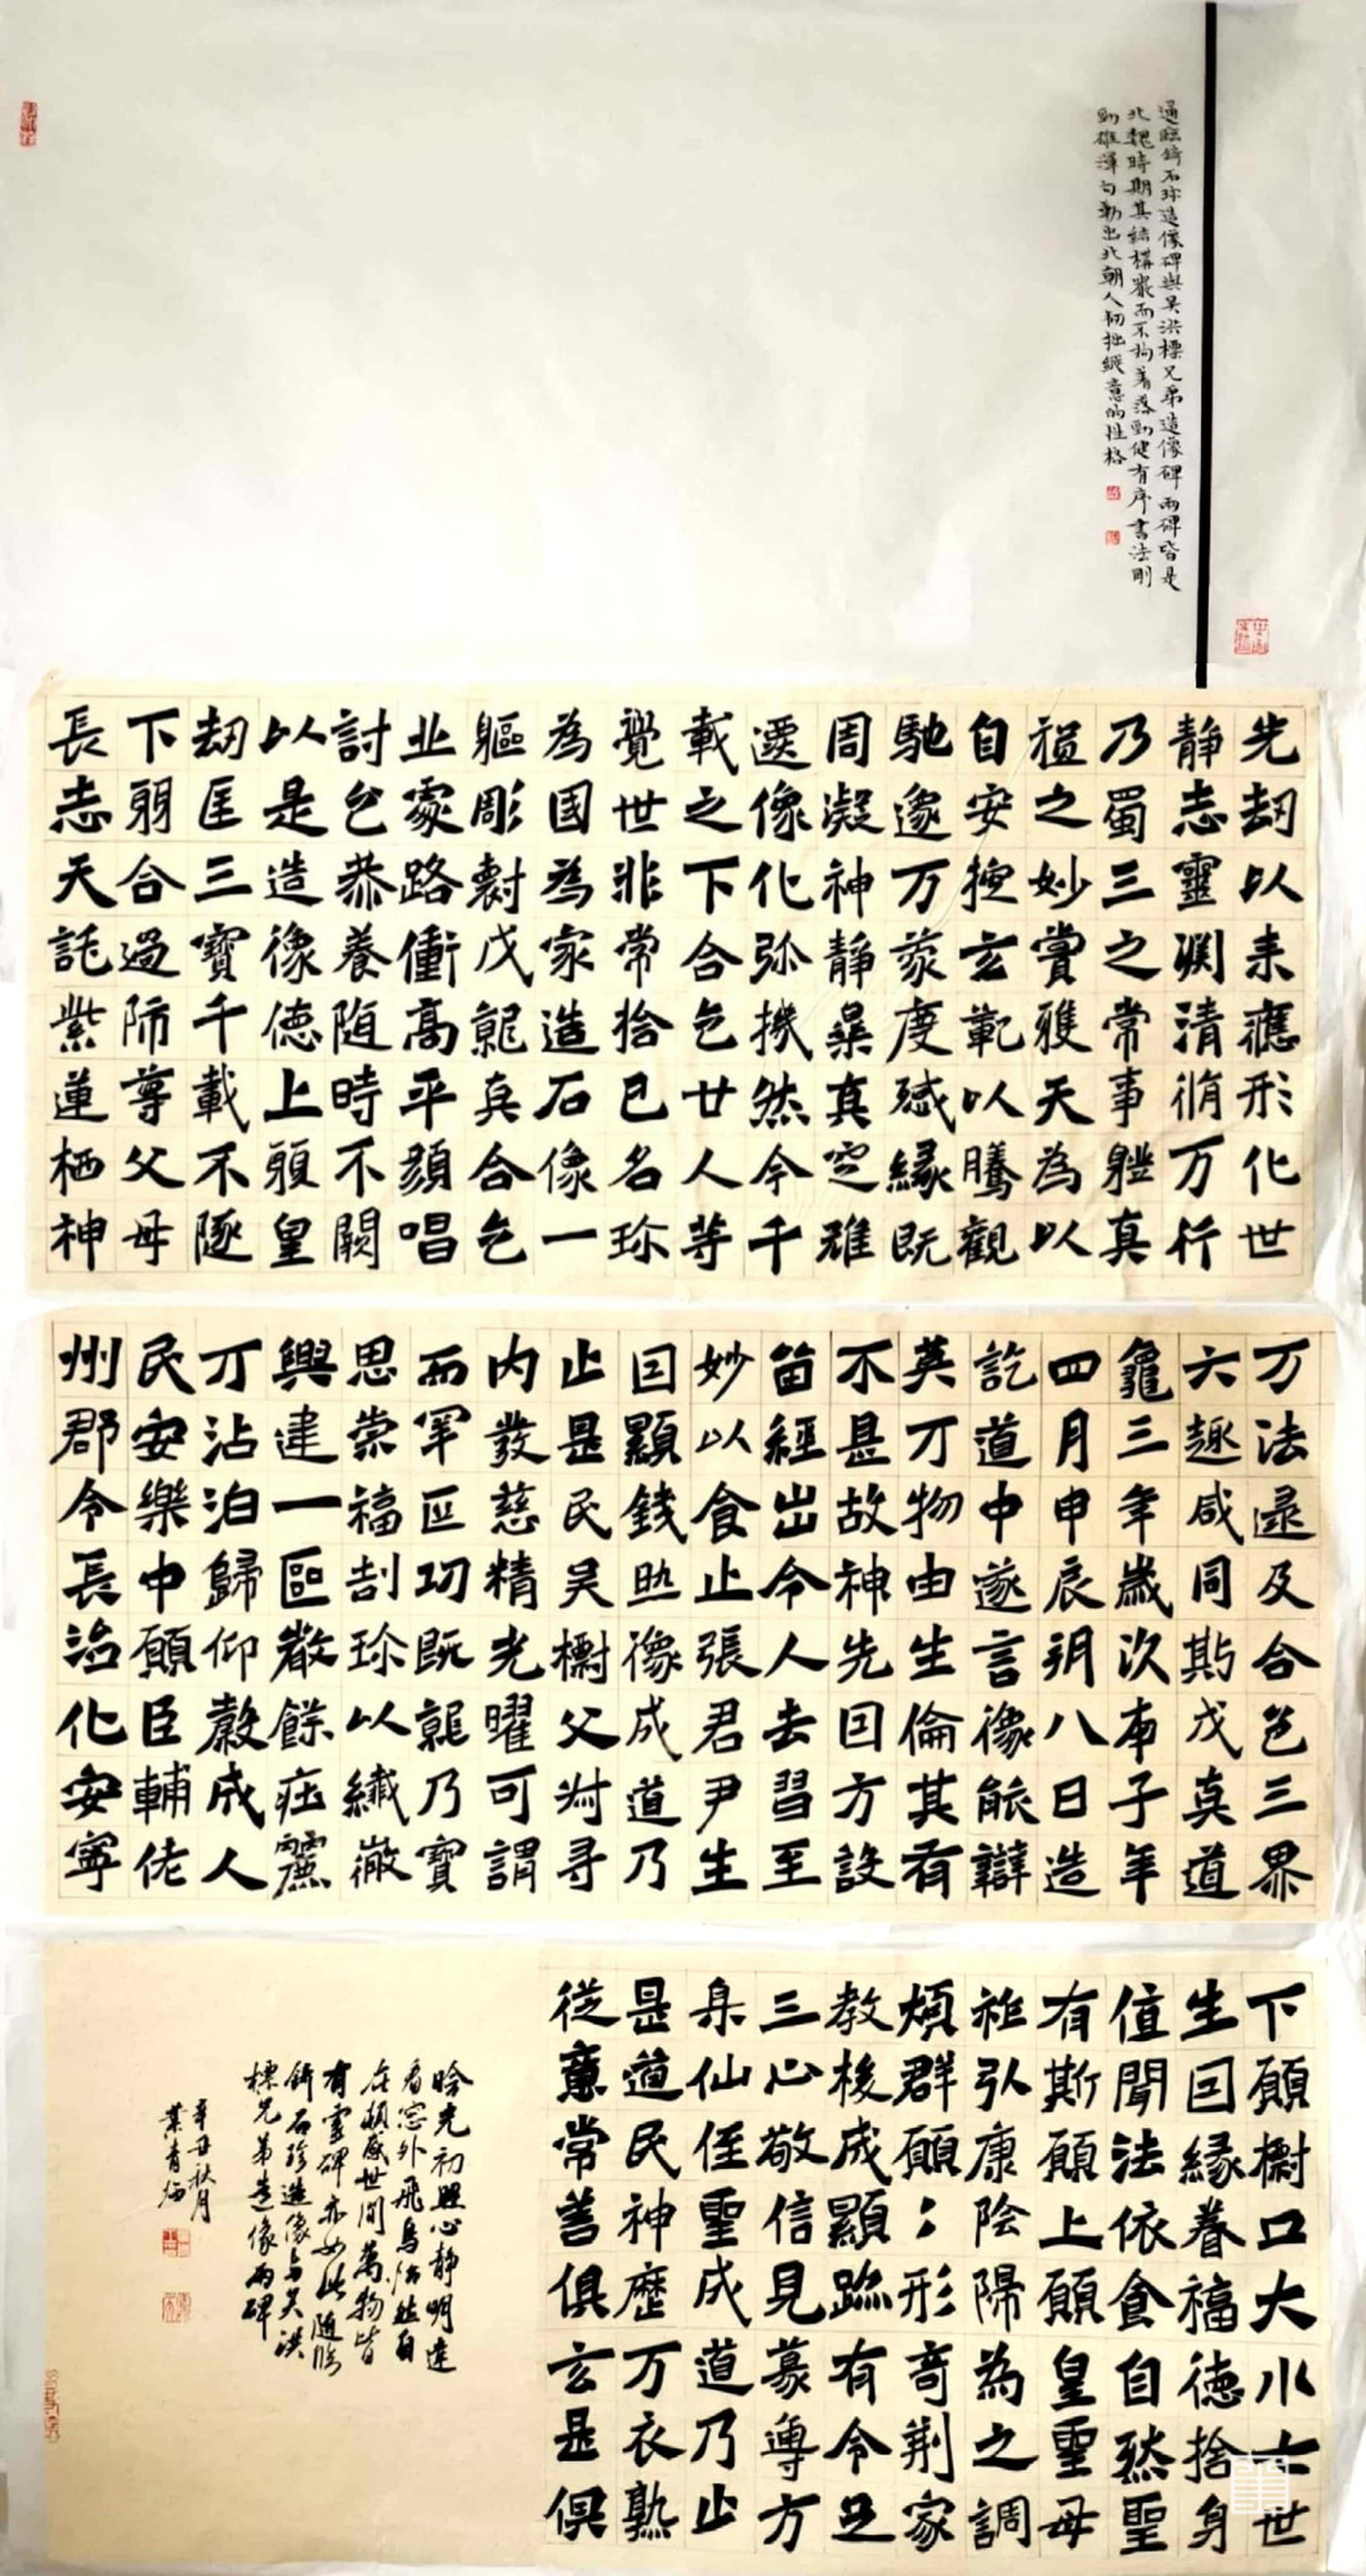 通臨錡石珍造像碑與吳洪標兄弟造像碑兩碑皆是
北魏時期其結構嚴而不拘著落勁健有序書法剛
勁雄渾勾勒出北朝人粗拙縱意的性格
先劫以来應形化世
静志靈渕清脩万行
乃蜀三之常事軆真
之妙賞雅天為以
自安玄範以騰觀
馳邃万蒙度感緣既
周凝神静真雖
遷像化弥機然今千
載之下合乞廿人等
覺世非常捨己名珎
為國為家造石像一
軀彫尌戊就真合乞
北家路衝高平顔唱
討乞恭養随時不闕
以是造像徳上願皇
劫匡三寶千載不墜
下明合過師尊父母
長志天託紫蓮栖神
万法逯及合邑三界
六趣咸同斯戊真道
龜三年歲次本子年
四月申辰朔八日造
訖道中遂言像能辯
英丁物由生倫其有
不是故神先回方設
笛經出令人去習至
妙以食止張君尹生
回顯錢煦像成道乃
止是民吴樹父尌寻
内發慈精光曜可謂
而罕匠功既就乃寳
思崇福刮珎以纖徹
興建一區嚴餘麗
丁沾泊歸仰成人
民安樂中願臣輔佐
州郡令長治化安寧
下願樹口大小士世
生回緣眷福徳捨身
值聞法依食自然聖
有斯願上願皇聖母
祚弘康陰陽為之調
煩群願;形奇荆家
教梭成顯跡有令足
三心敬信見篆專方
枭仙侄聖成道乃止
是道民神歷万衣熟
從意常善俱玄是俱
晗光初照心静明遠
看窓外飛鳥怡然自
在頓感世間萬物皆
有靈碑亦如此随臨
錡石珍造像与吴洪
標兄弟造像兩碑
辛丑秋月
葉青